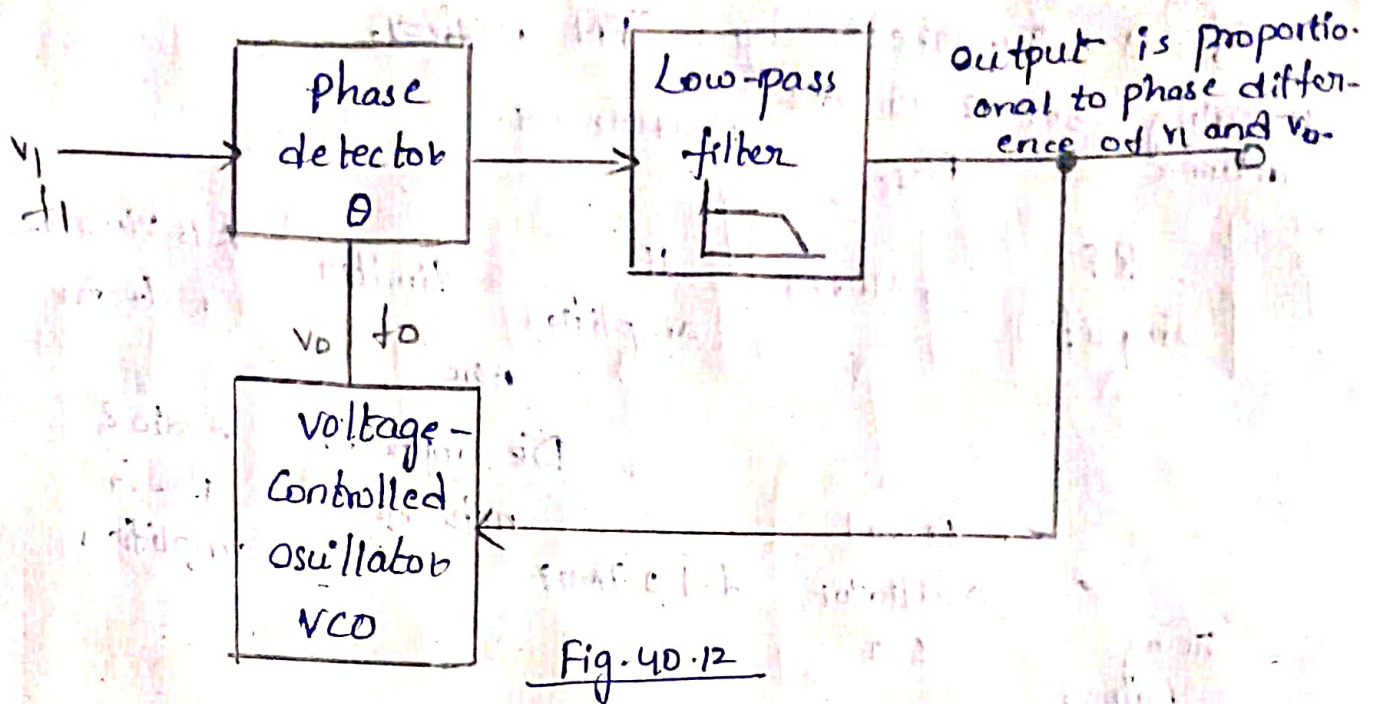 Phase
detector
θ
Low-pass
filter
output is proportio-
onal to phase differ-
ence of v1 and vo.
v1
f1
vo fo
Voltage-
Controlled
Oscillator
VCO
Fig. 40.12